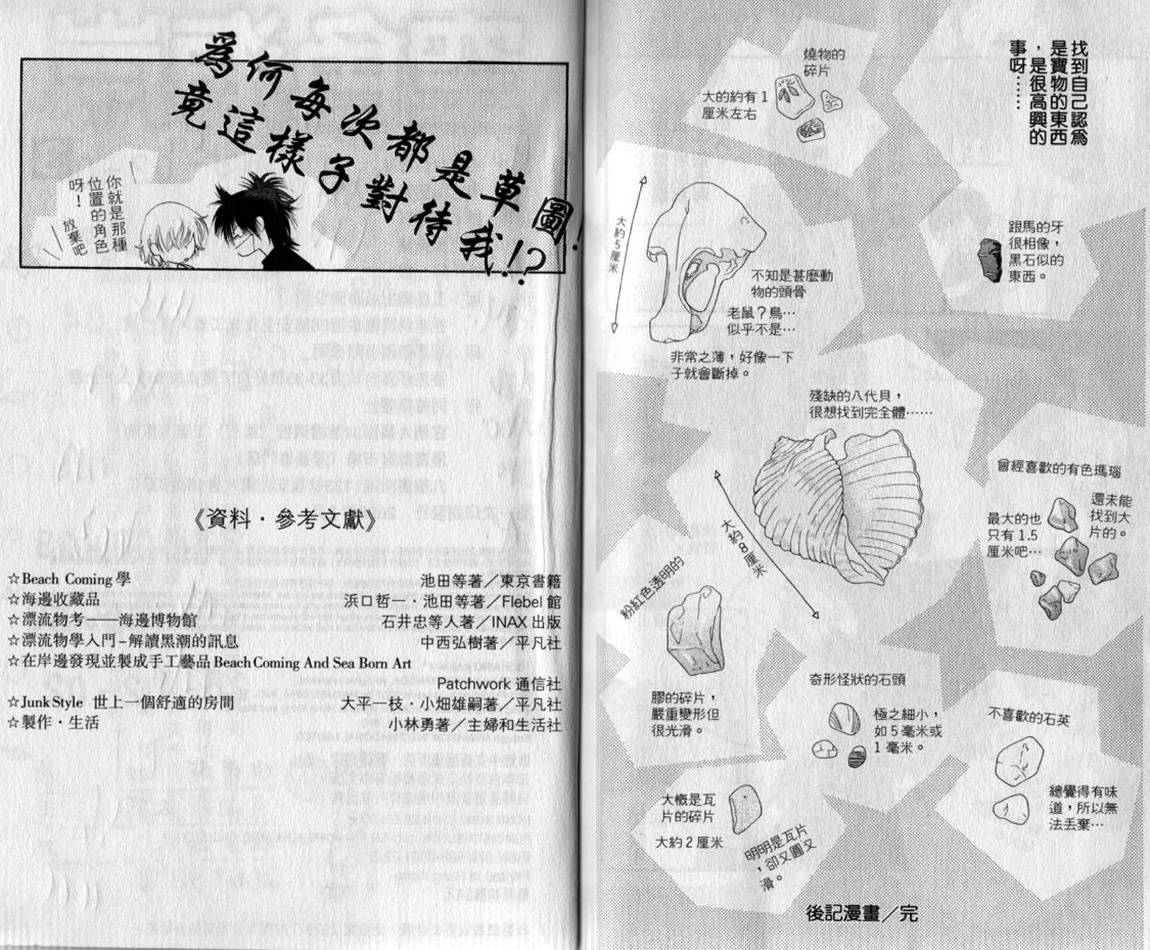 找到自己認為
是寶物的東西
，是很高興的
事呀……
燒物的
碎片
大的約有1
厘米左右
跟馬的牙
很相像，
黑石似的
東西。
大約5厘米
不知是甚麼動
物的頭骨
老鼠？鳥…
似乎不是…
非常之薄，好像一下
子就會斷掉。
殘缺的八代貝，
很想找到完全體……
大約8厘米
曾經喜歡的有色瑪瑙
還未能
找到大
片的。
最大的也
只有1.5
厘米吧…
粉紅色透明的
膠的碎片，
嚴重變形但
很光滑。
奇形怪狀的石頭
極之細小，
如5毫米或
1毫米。
不喜歡的石英
總覺得有味
道，所以無
法丟棄…
大概是瓦
片的碎片
大約2厘米
明明是瓦片
，卻又圓又
滑。
後記漫畫／完
為何每次都是草圖！
竟這樣子對待我！？
你就是那種
位置的角色
呀！放棄吧
《資料・參考文獻》
☆Beach Coming 學 池田等著／東京書籍
☆海邊收藏品 浜口哲一・池田等著／Flebel 館
☆漂流物考——海邊博物館 石井忠等人著／INAX 出版
☆漂流物學入門–解讀黑潮的訊息 中西弘樹著／平凡社
☆在岸邊發現並製成手工藝品 Beach Coming And Sea Born Art
Patchwork 通信社
☆Junk Style 世上一個舒適的房間 大平一枝・小畑雄嗣著／平凡社
☆製作・生活 小林勇著／主婦和生活社